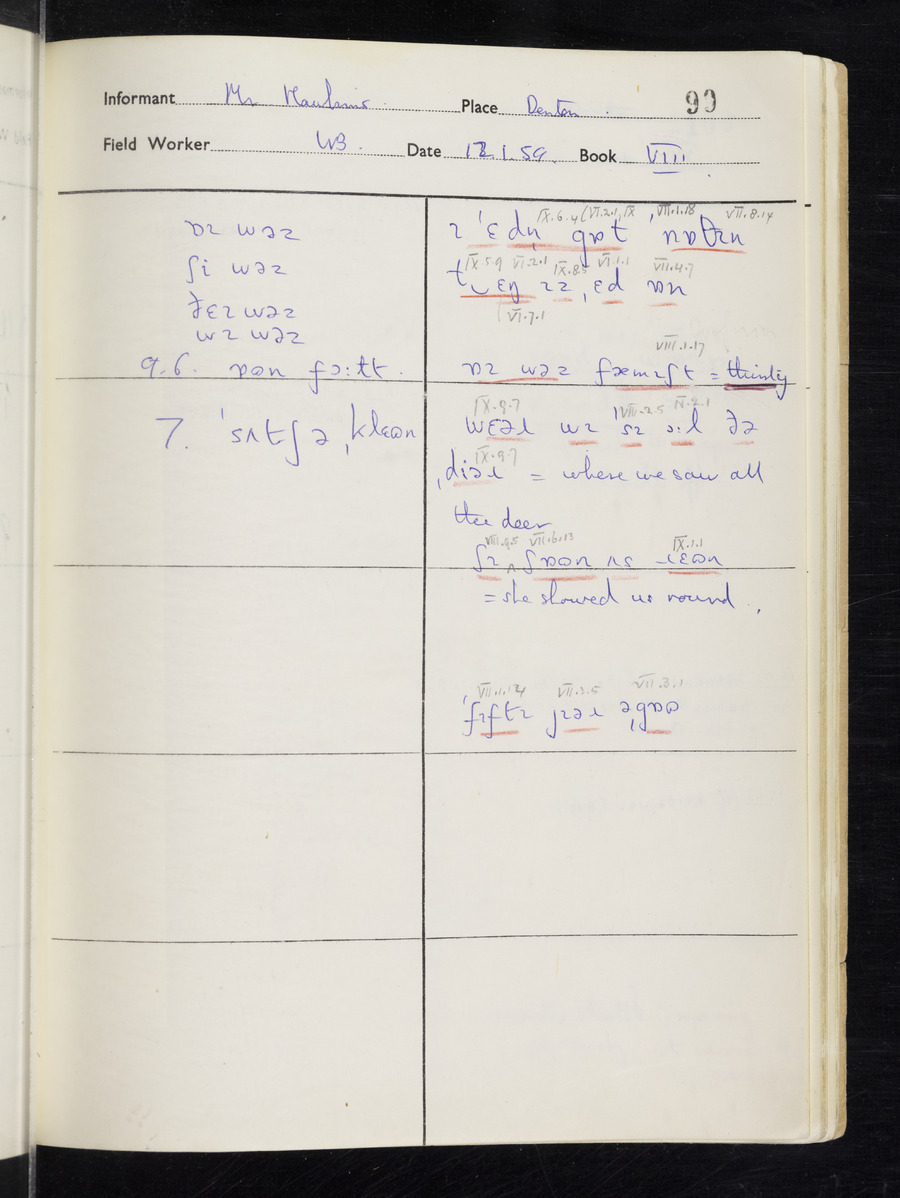 Informant Mr Place Denton 99
Field Worker WB. Date 1.59. Book VIII
ɒɪ wəz
ʃi wəz
ðɛɪ wəz
wɪ wəz
9.6. ɒʊn fɔ:tt.
7. ˈsʌtʃ ə ˌklɛʊn
IX.6.4 (VI.2.1, IX VII.1.18 VII.8.14
ɪ ˈɛdn̩ gɒt nɒθɪn
IX.5.9 VI.2.1 IX.8.5 VI.1.1 VII.4.7
t‿ɛŋ ɪz ˌɛd ɒn
VI.7.1
VIII.1.17
ɒɪ wəz fæmɪʃt = thirsty
IX.9.7 VIII.2.5 IV.2.1
wɛəɹ wɪ ˈsɪ ɔ:l ðə
IX.9.7
ˌdiəɹ = where we saw all
the deer
VIII.9.5 VII.6.13 IX.1.1
ʃɪ ʃɒʊn ʌs ɹɛʊn
= she showed us round.
VII.1.14 VII.3.5 VII.3.1
ˈfɪftɪ jɪəɹ əˌgɒʊ